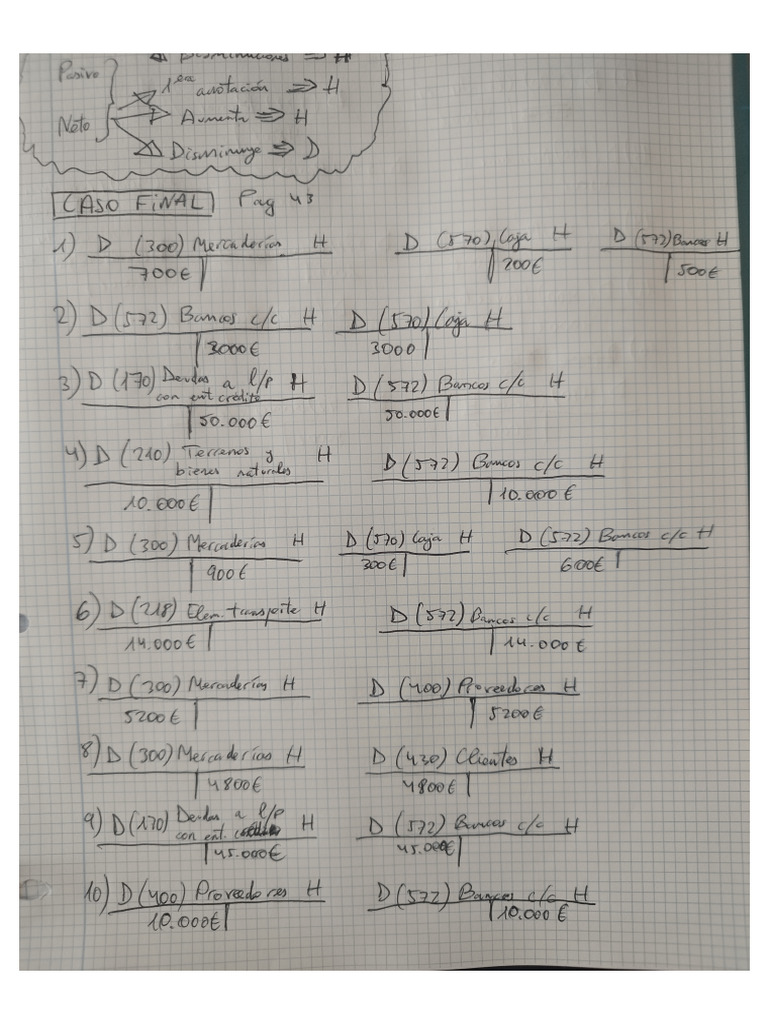 Disminuciones ⇒ H
Pasivo
1era anotación ⇒ H
Neto Aumenta ⇒ H
Disminuye ⇒ D
CASO FINAL Pag 43
1) D (300) Mercaderías H D (570) Caja H D (572) Bancos H
700€ 200€ 500€
2) D (572) Bancos c/c H D (570) Caja H
3000€ 3000
3) D (170) Deudas a l/p H D (572) Bancos c/c H
con ent crédito
50.000€ 50.000€
4) D (210) Terrenos y H D (572) Bancos c/c H
bienes naturales
10.000€ 10.000€
5) D (300) Mercaderías H D (570) Caja H D (572) Bancos c/c H
900€ 300€ 600€
6) D (218) Elem. transporte H D (572) Bancos c/c H
14.000€ 14.000€
7) D (300) Mercaderías H D (400) Proveedores H
5200€ 5200€
8) D (300) Mercaderías H D (430) Clientes H
4800€ 4800€
9) D (170) Deudas a l/p H D (572) Bancos c/c H
con ent.
45.000€ 45.000€
10) D (400) Proveedores H D (572) Bancos c/c H
10.000€ 10.000€